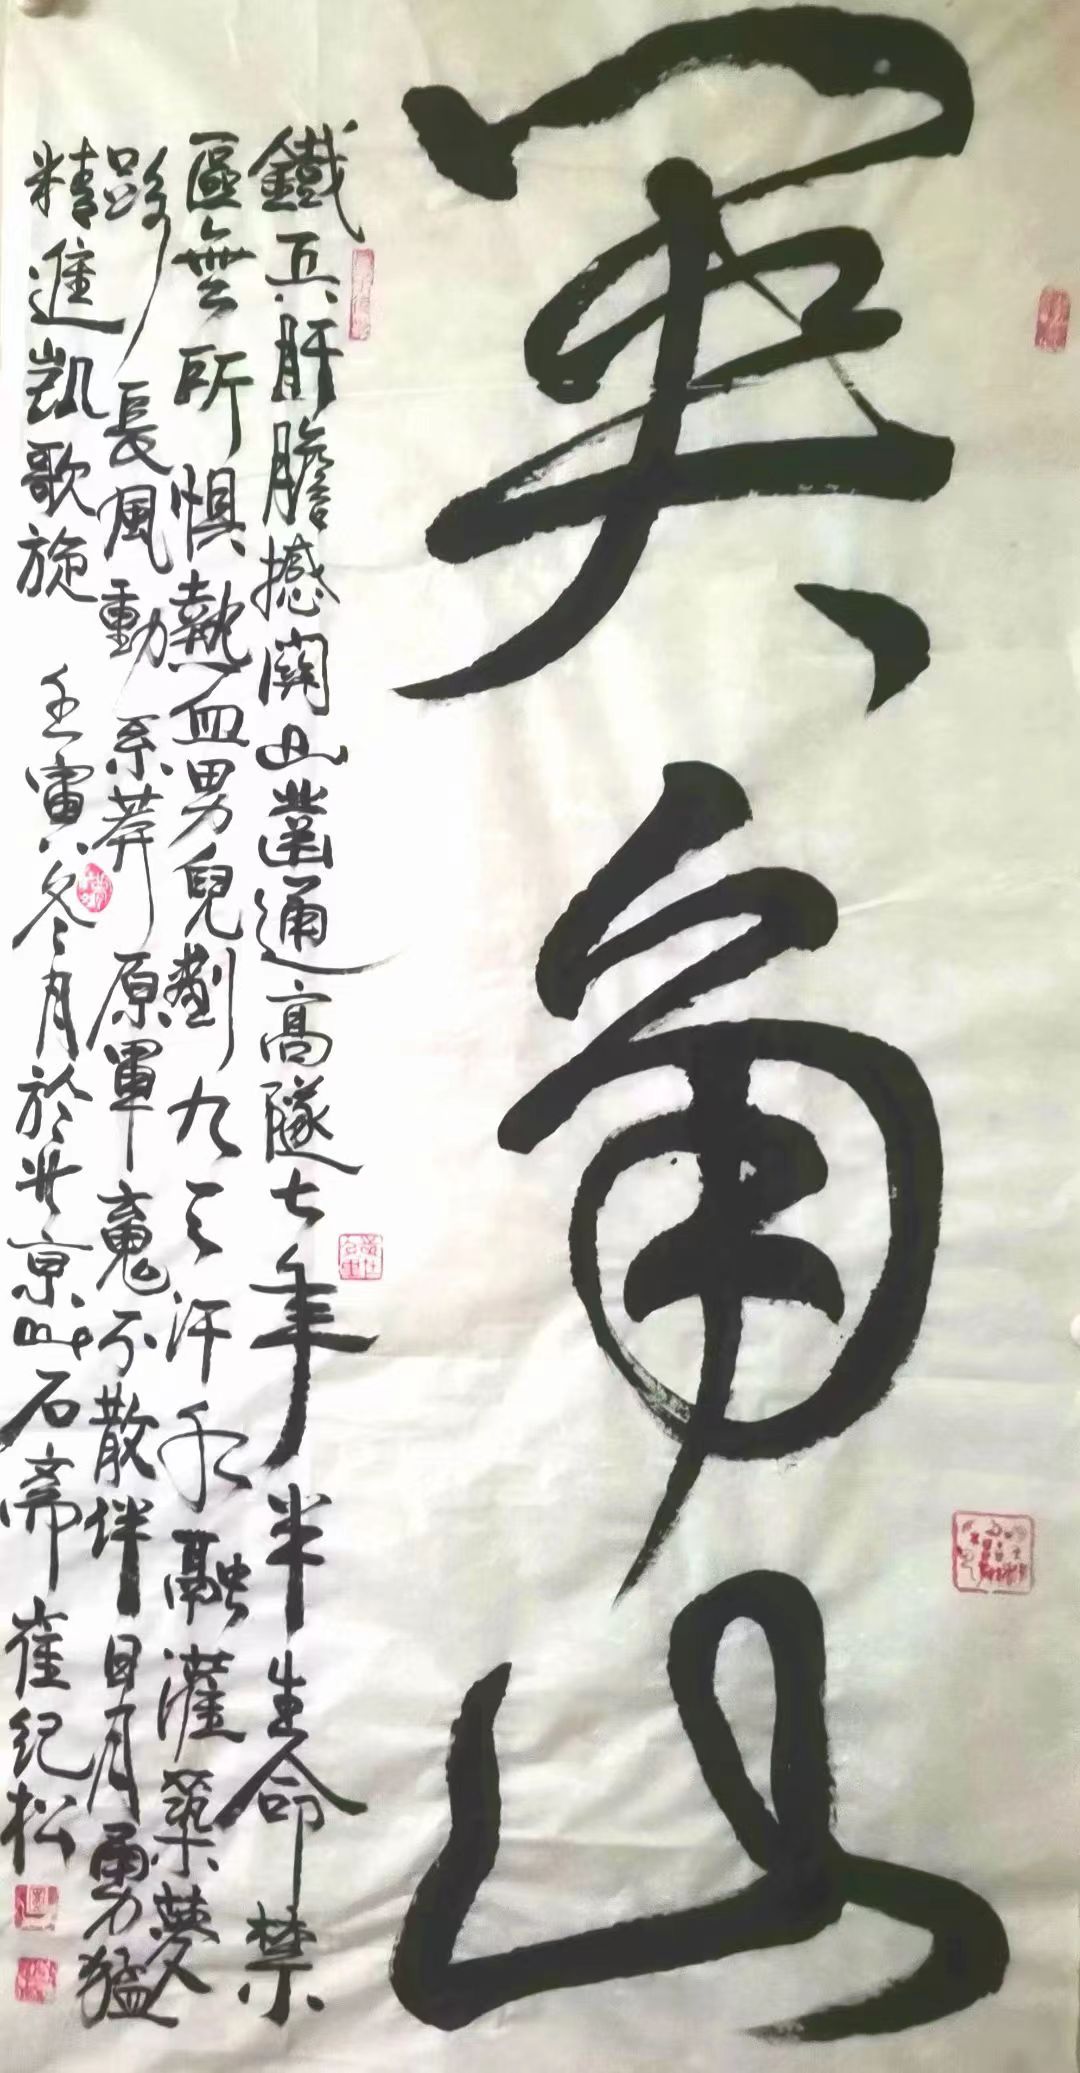 關角山
鐵兵肝膽撼關山鑿通高隧七年半生命禁
區無所懼熱血男兒劃九汗水融灌築夢
路長風動系莽原軍魂不散伴日月勇猛
精進凱歌旋 壬寅冬月於北京石齋崔紀松